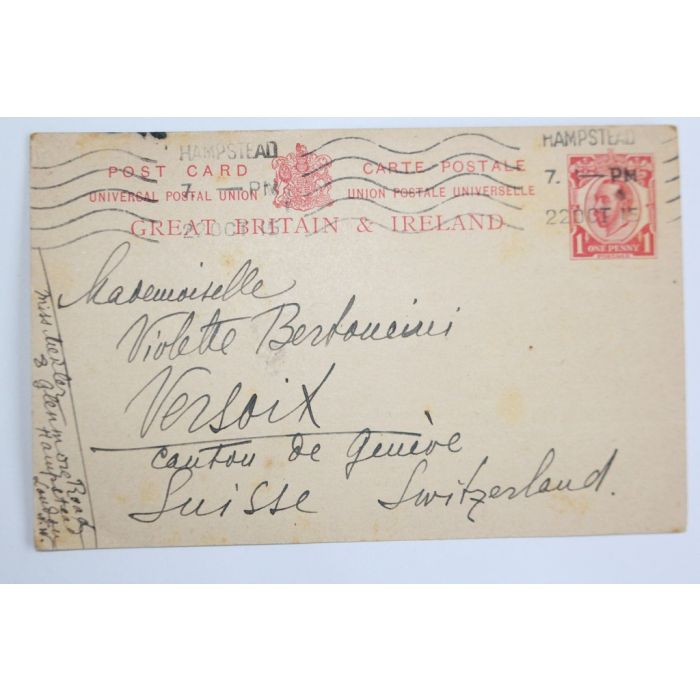 HAMPSTEAD
7. — PM
22 OCT 15
HAMPSTEAD
7. — PM
22 OCT 15
POST CARD
CARTE POSTALE
UNIVERSAL POSTAL UNION
UNION POSTALE UNIVERSELLE
GREAT BRITAIN & IRELAND
1 ONE PENNY 1
Mademoiselle
Violette Bertoncini
Versoix
canton de Genève
Suisse Switzerland.
Miss
8 Glenmore Road
Hampstead
London